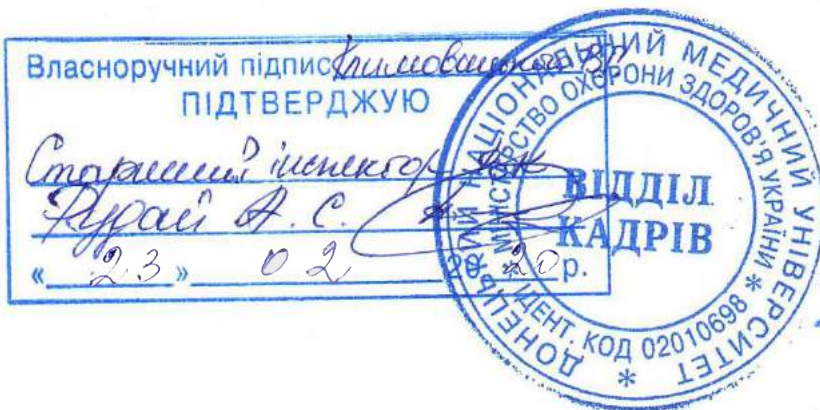 Власноручний підпис Климовицького В.Г.
ПІДТВЕРДЖУЮ
Старший інспектор ВК
Рудай А. С.
« 23 » 02 2020 р.
ДОНЕЦЬКИЙ НАЦІОНАЛЬНИЙ МЕДИЧНИЙ УНІВЕРСИТЕТ *
МІНІСТЕРСТВО ОХОРОНИ ЗДОРОВ'Я УКРАЇНИ *
ІДЕНТ. КОД 02010698
ВІДДІЛ
КАДРІВ